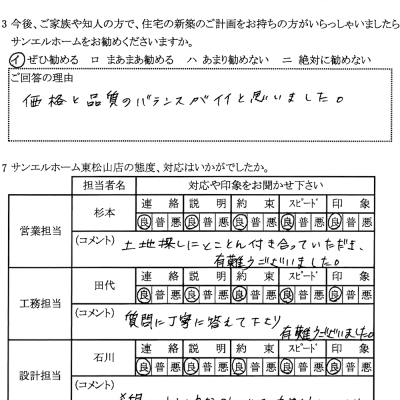 3 今後、ご家族や知人の方で、住宅の新築のご計画をお持ちの方がいらっしゃいましたら
サンエルホームをお勧めくださいますか。
イ ぜひ勧める ロ まあまあ勧める ハ あまり勧めない ニ 絶対に勧めない
ご回答の理由
価格と品質のバランスがイイと思いました。
7 サンエルホーム東松山店の態度、対応はいかがでしたか。
担当者名 対応や印象をお聞かせ下さい
営業担当 杉本 連絡 説明 約束 スピード 印象
良 普 悪 良 普 悪 良 普 悪 良 普 悪 良 普 悪
(コメント) 土地探しにとことん付き合っていただき、
有難うございました。
工務担当 田代 連絡 説明 約束 スピード 印象
良 普 悪 良 普 悪 良 普 悪 良 普 悪 良 普 悪
(コメント) 質問に丁寧に答えて下さり
有難うございました。
設計担当 石川 連絡 説明 約束 スピード 印象
良 普 悪 良 普 悪 良 普 悪 良 普 悪 良 普 悪
(コメント)